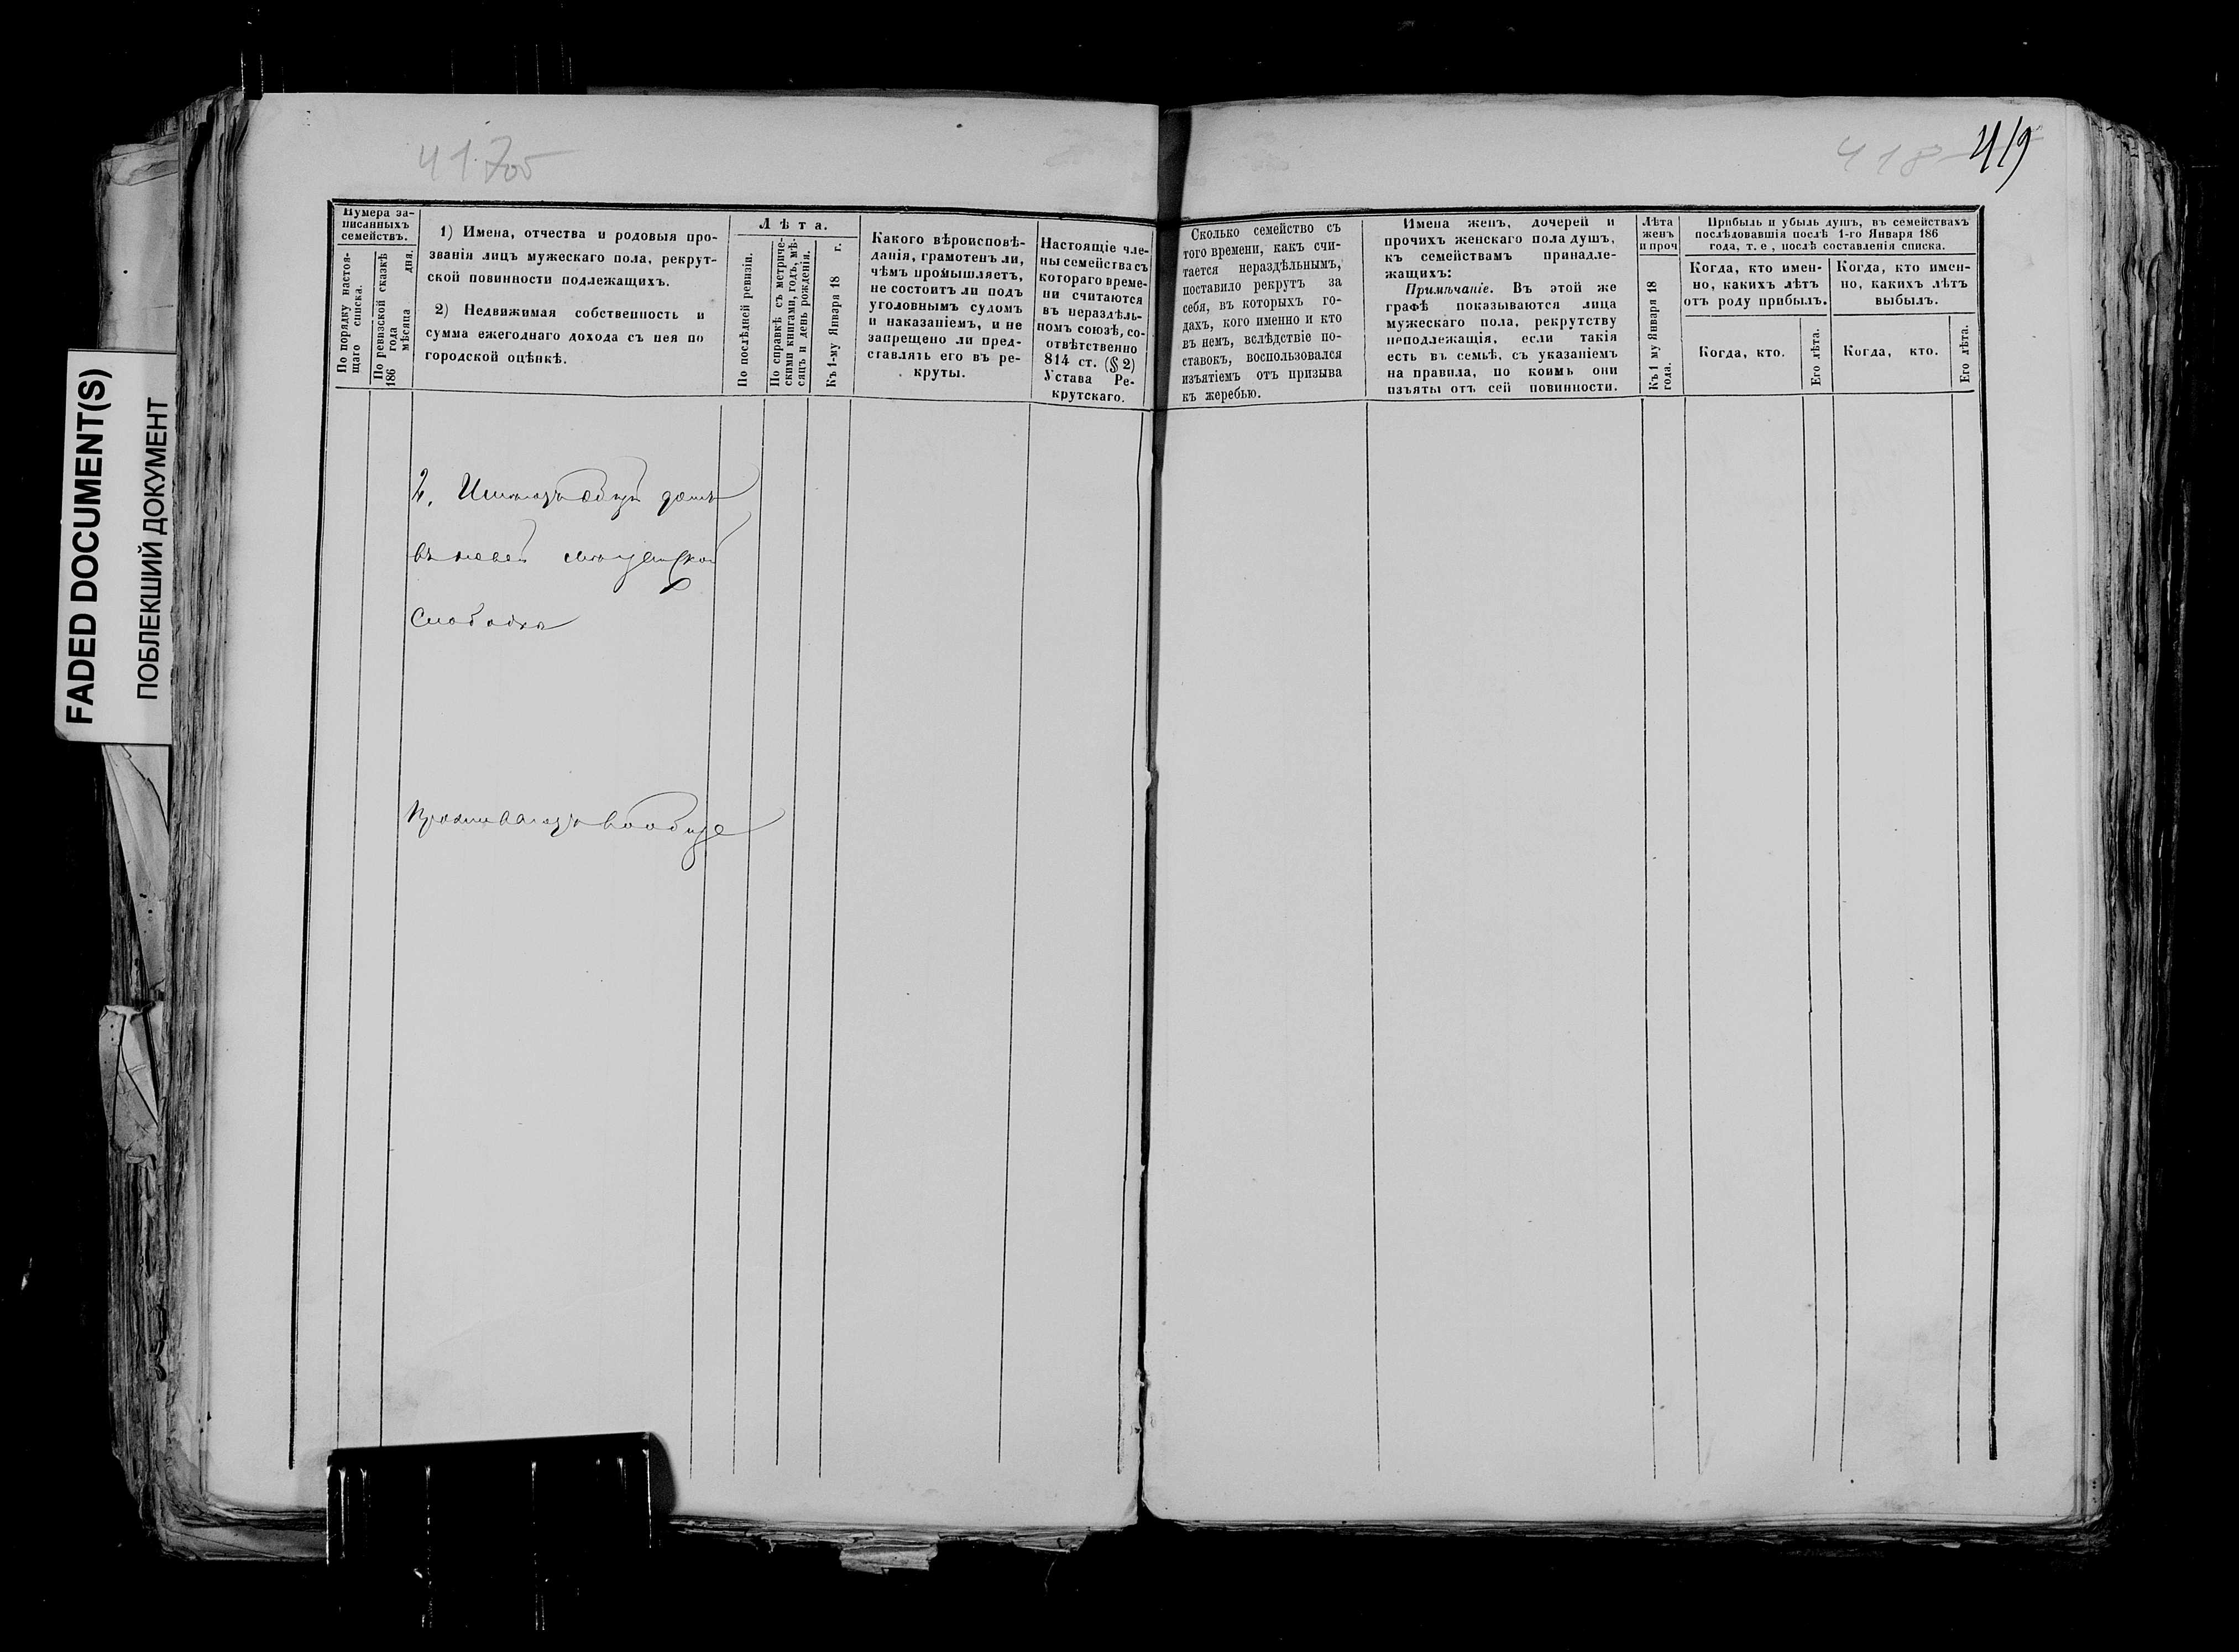 FADED DOCUMENT(S)
ПОБЛЕКШИЙ ДОКУМЕНТ
417об
418
419
Нумера за-
писанныхъ
семействъ.
По порядку настоя-
щаго списка.
По ревизской сказкѣ
186 года
мѣсяца дня.
1) Имена, отчества и родовыя про-
званія лицъ мужескаго пола, рекрут-
ской повинности подлежащихъ.
2) Недвижимая собственность и
сумма ежегоднаго дохода съ нея по
городской оцѣнкѣ.
Лѣта.
По послѣдней ревизіи.
По справкѣ съ метриче-
скими книгами, годъ, мѣ-
сяцъ и день рожденія.
Къ 1-му Января 18 г.
Какого вѣроисповѣ-
данія, грамотенъ ли,
чѣмъ промышляетъ,
не состоитъ ли подъ
уголовнымъ судомъ
и наказаніемъ, и не
запрещено ли пред-
ставлять его въ ре-
круты.
Настоящіе чле-
ны семейства съ
котораго време-
ни считаются
въ нераздѣль-
номъ союзѣ, со-
отвѣтственно
814 ст. (§ 2)
Устава Ре-
крутскаго.
Сколько семейство съ
того времени, какъ счи-
тается нераздѣльнымъ,
поставило рекрутъ за
себя, въ которыхъ го-
дахъ, кого именно и кто
въ немъ, вслѣдствіе по-
ставокъ, воспользовался
изъятіемъ отъ призыва
къ жеребью.
Имена женъ, дочерей и
прочихъ женскаго пола душъ,
къ семействамъ принадле-
жащихъ:
Примѣчаніе. Въ этой же
графѣ показываются лица
мужескаго пола, рекрутству
неподлежащія, если такія
есть въ семьѣ, съ указаніемъ
на правила, по коимъ они
изъяты отъ сей повинности.
Лѣта
женъ
и проч
Къ 1 му Января 18
года.
Прибыль и убыль душъ, въ семействахъ
послѣдовавшія послѣ 1-го Января 186
года, т. е, послѣ составленія списка.
Когда, кто имен-
но, какихъ лѣтъ
отъ роду прибылъ.
Когда, кто.
Его лѣта.
Когда, кто имен-
но, какихъ лѣтъ
выбылъ.
Когда, кто.
Его лѣта.
2, домъ
въ новой
Слободка
Проживаютъ вообще